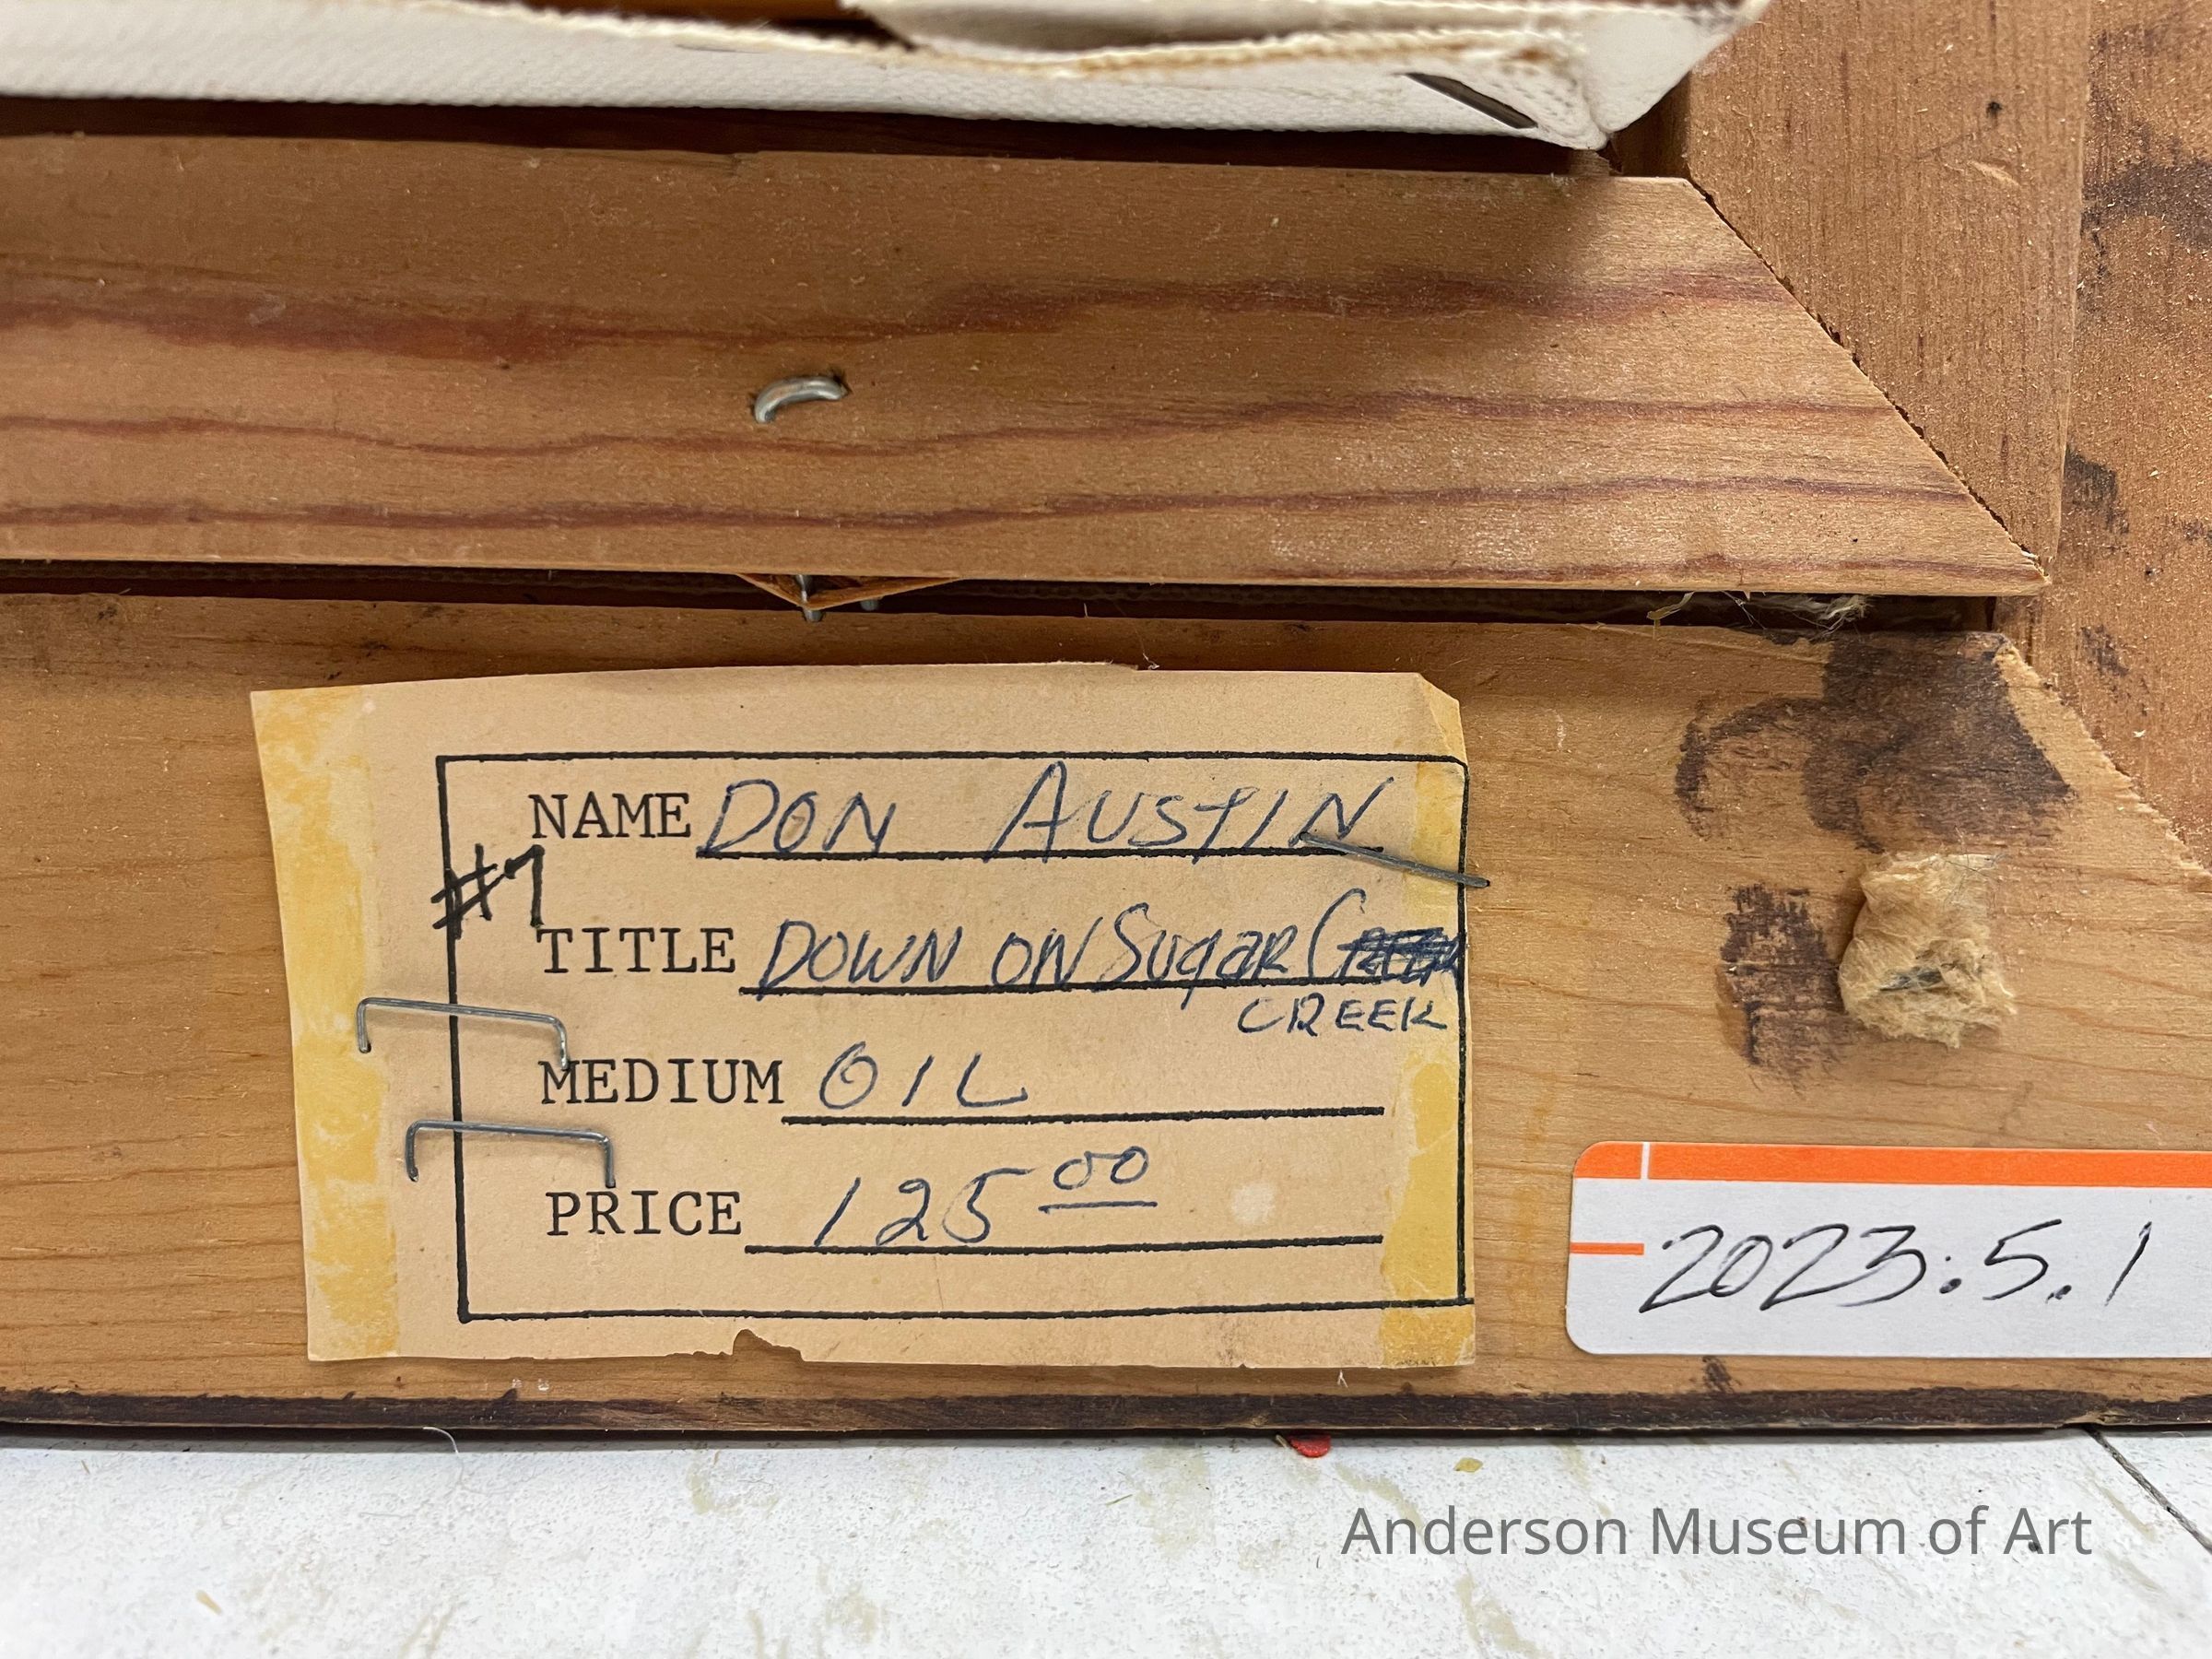 NAME DON AUSTIN
#7
TITLE DOWN ON SugAR
CREEK
MEDIUM OIL
PRICE 125 00
2023.5.1
Anderson Museum of Art